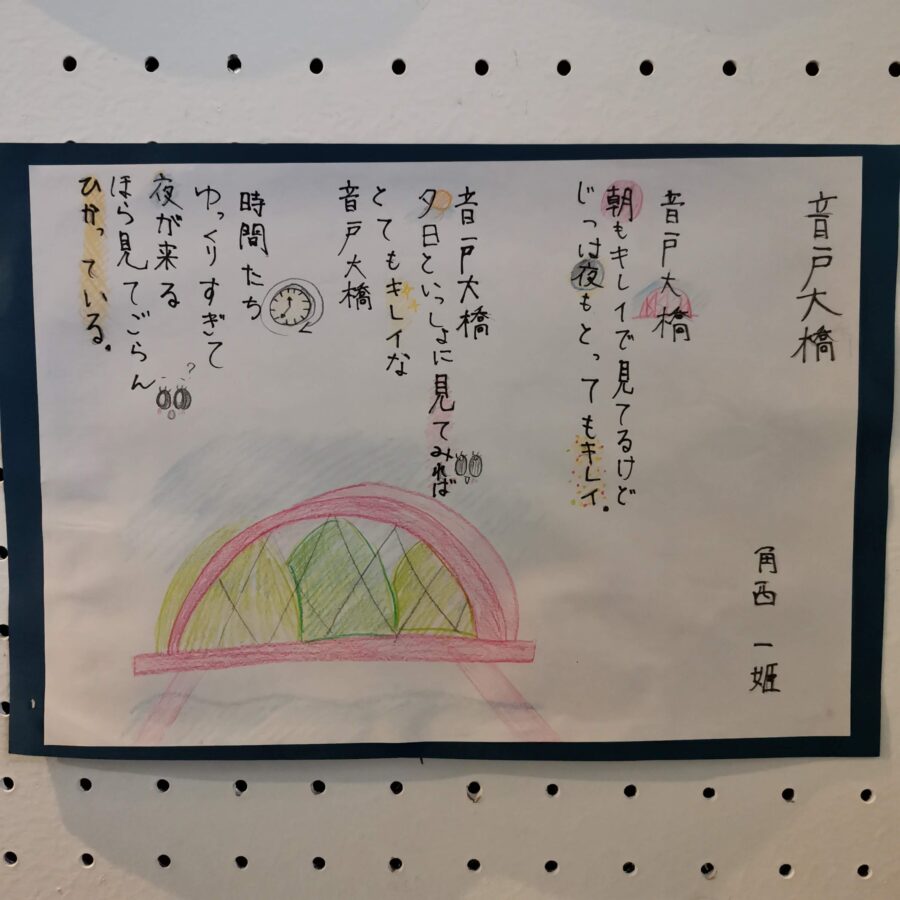 音戸大橋
角西 一姫
音戸大橋
朝もキレイで見てるけど
じつは夜もとってもキレイ。
音戸大橋
夕日といっしょに見てみれば
とてもキレイな
音戸大橋
時間たち
ゆっくりすぎて
夜が来る
ほら見てごらん
ひかっている。